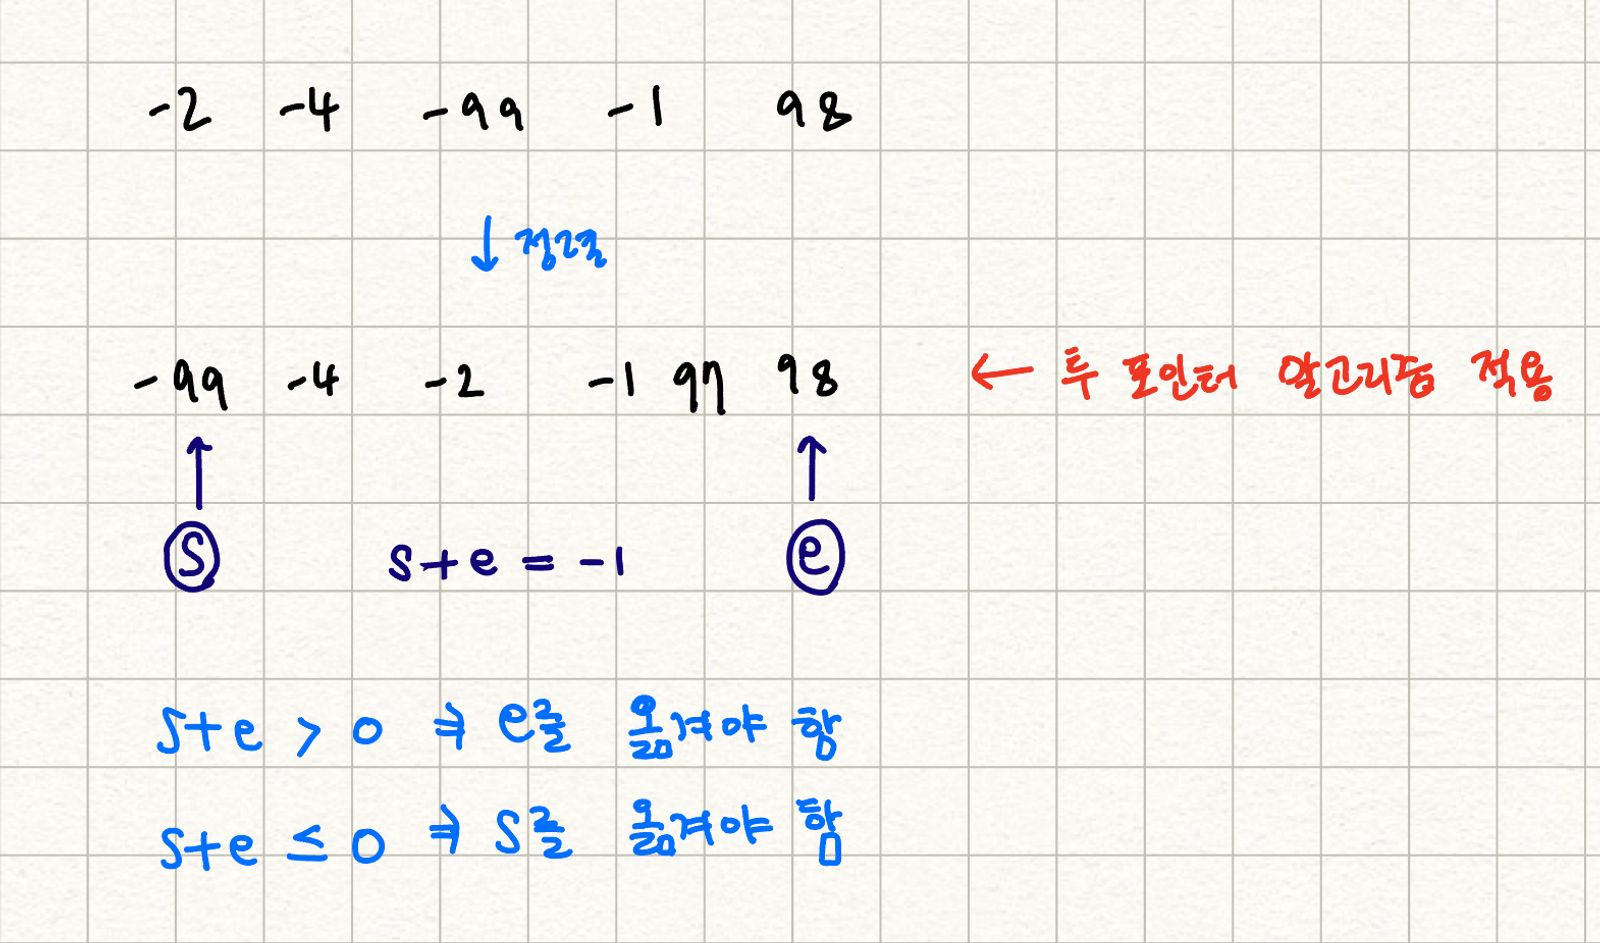 -2 -4 -99 -1 98
↓ 정렬
-99 -4 -2 -1 97 98 ← 투 포인터 알고리즘 적용
↑ ↑
S s+e = -1 e
s+e > 0 ⇒ e를 옮겨야 함
s+e ≤ 0 ⇒ s를 옮겨야 함